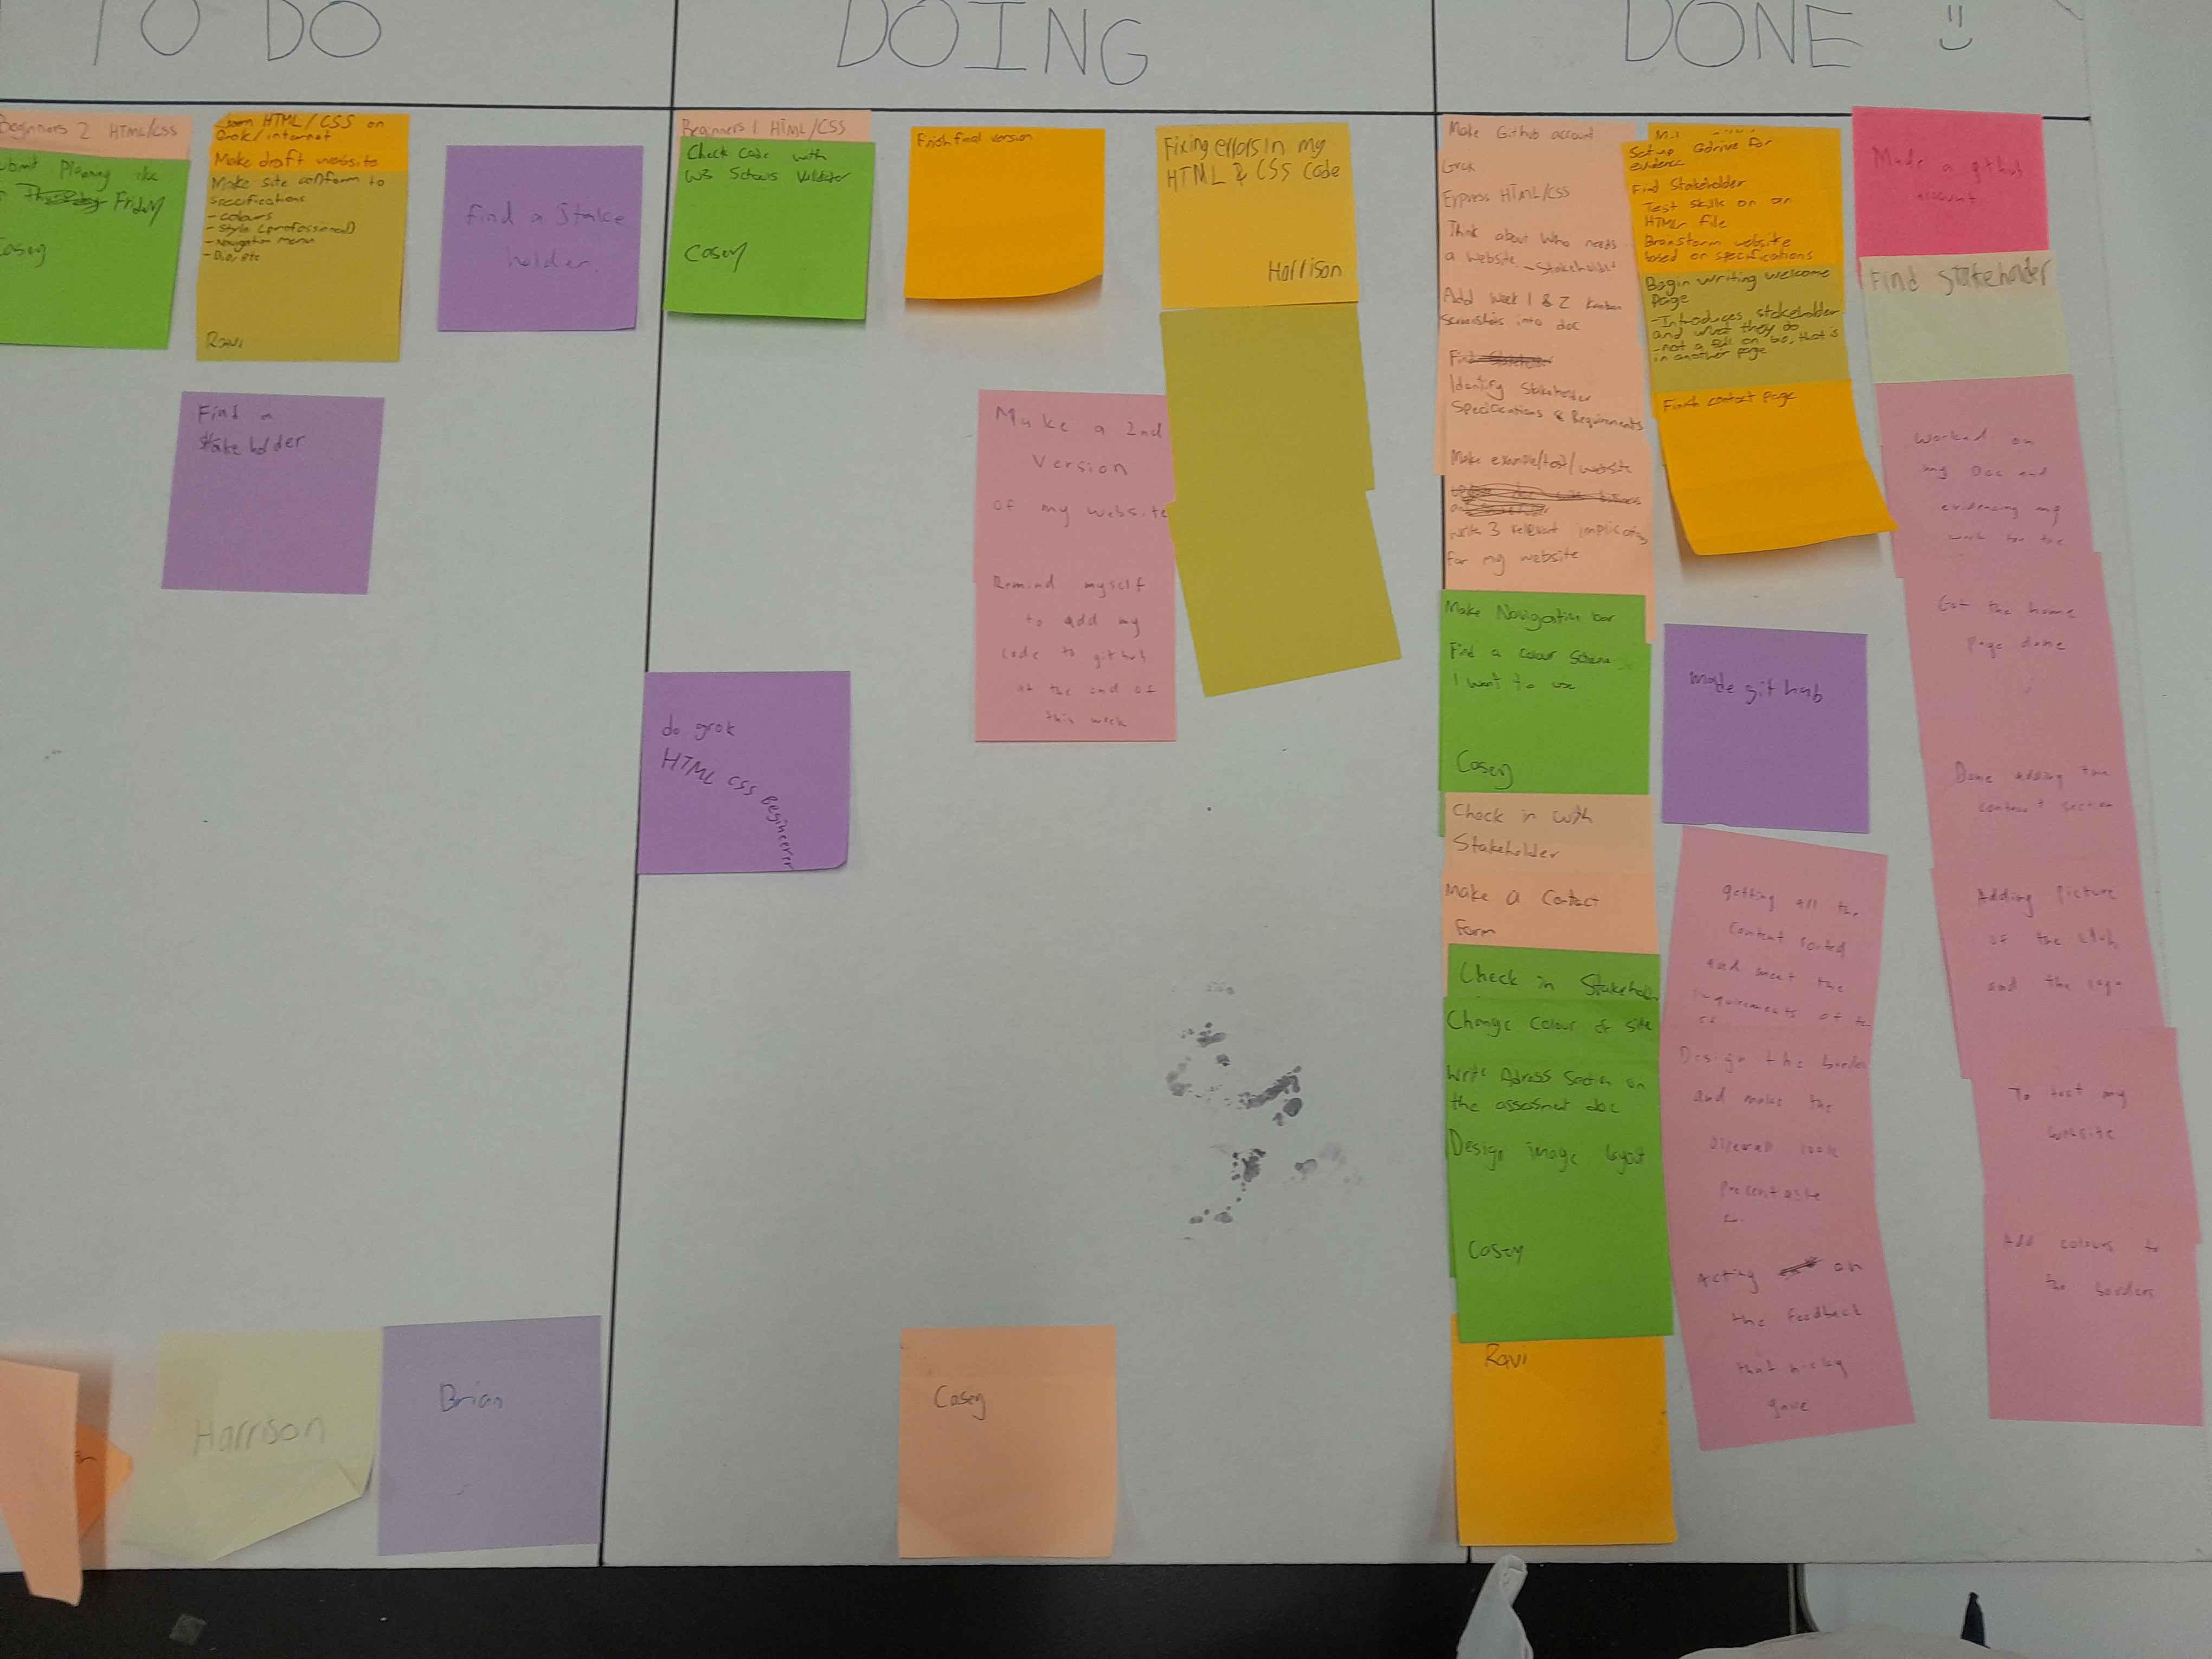 TO DO
DOING
DONE
Beginners 2 HTML/CSS
Friday
Casey
HTML/CSS on
Grok/internet
Make draft website
Make site conform to
specifications
- colours
- style (professional)
- Navigation menu
- Divs etc
Ravi
find a Stake
holder.
Find a
stake holder
Harrison
Brian
Beginners 1 HTML/CSS
Check Code with
W3 Schools Validator
Casey
Finish final version
Fixing errors in my
HTML & CSS Code
Harrison
Make a 2nd
Version
of my website
Remind myself
to add my
code to github
at the end of
this week
do grok
HTML CSS Begineerer
Casey
Make Github account
Grok
Express HTML/CSS
Think about who needs
a website - Stakeholder
Add week 1 & 2 kanban
Screenshots into doc
Identify Stakeholder
Specifications & Requirements
Make example/test/website
write 3 relevant
for my website
Make Navigation bar
Find a colour Scheme
I want to use
Casey
Check in with
Stakeholder
Make a Contact
Form
Check in Stakeholder
Change Colour of site
Write Adress Section on
the assessment doc
Design image layout
Casey
Ravi
Set up Gdrive for
evidence
Find Stakeholder
Test skills on an
HTML file
Brainstorm website
based on specifications
Begin writing welcome
page
- Introduces stakeholder
and what they do
- not a full on bio, that is
in another page
Finish contact page
made git hub
getting all the
content sorted
and meet the
requirements of
Design the border
and make the
overall look
Acting on
the feedback
that
gave
Made a github
account
Find stakeholder
Worked on
my Doc and
evidencing my
work for the
Got the home
page done
Done adding the
contact section
Adding picture
of the club
and the logo
To test my
website
Add colours to
the borders